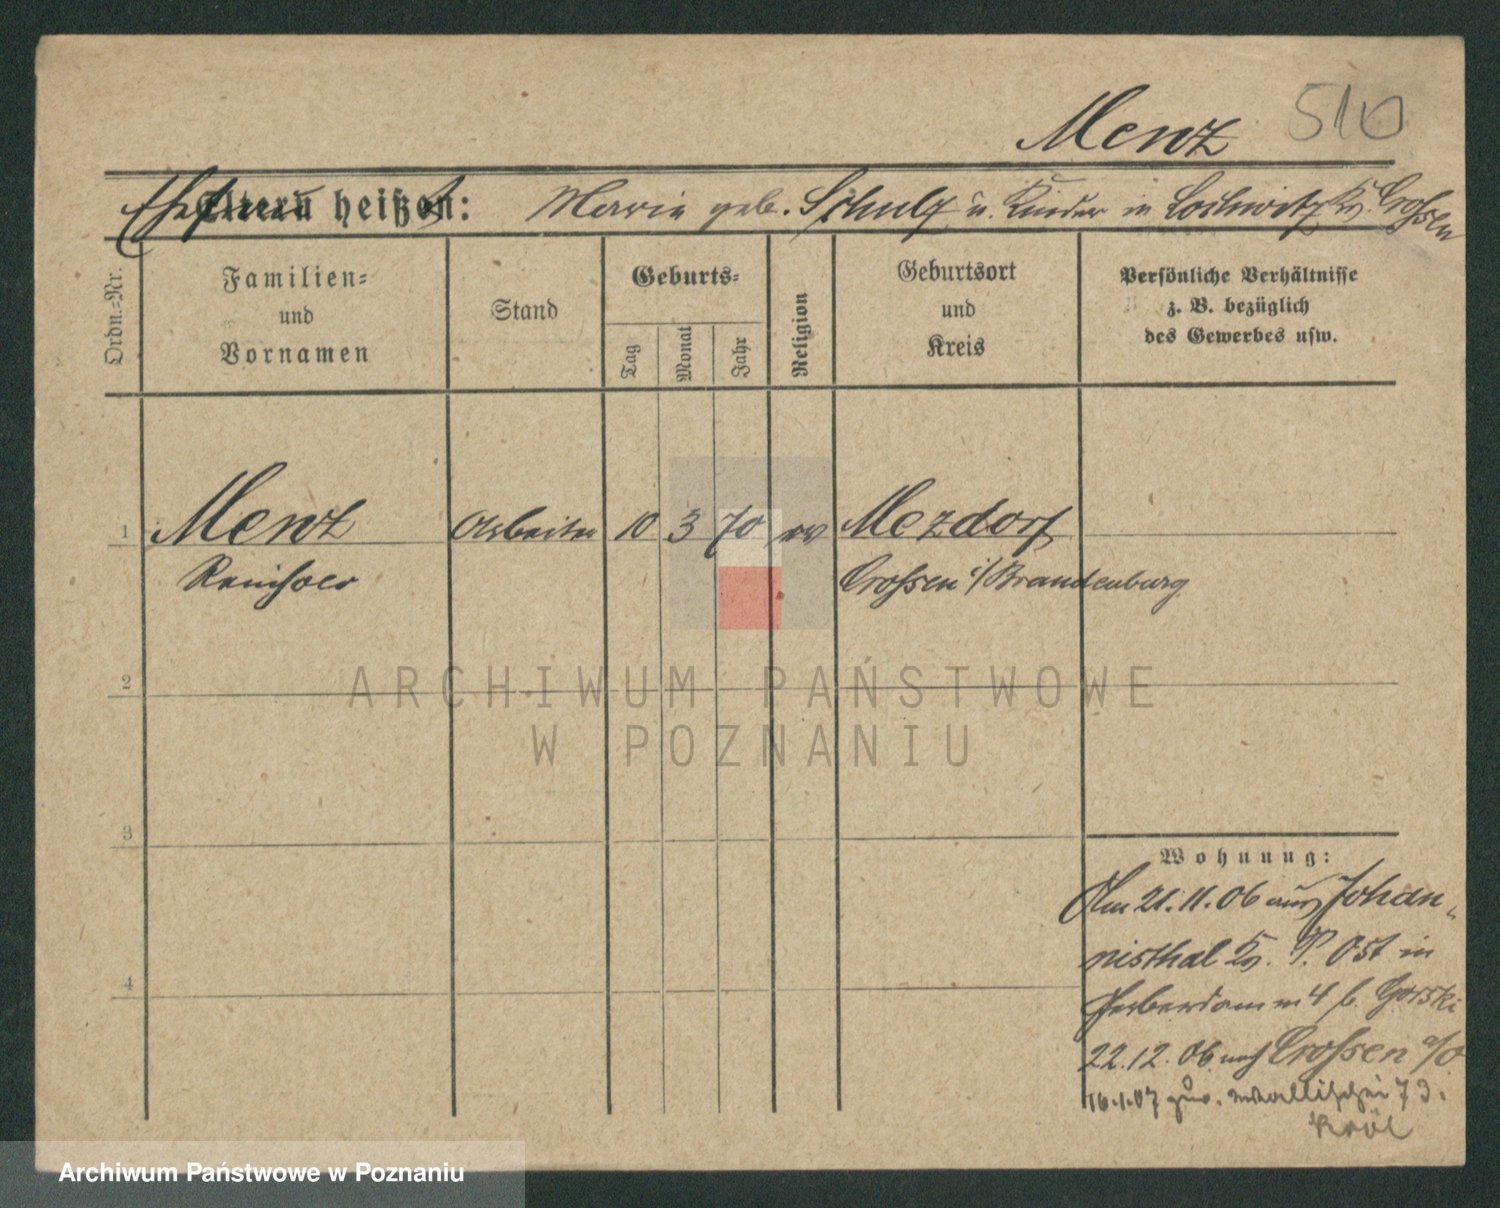 Menz 510
Ehefrau
Eltern heißen: Marie geb. Schulz u. Kinder in Lochwitz Kr. Crossen
Ordn.-Nr.
Familien-
und
Vornamen
Stand
Geburts-
Tag
Monat
Jahr
Religion
Geburtsort
und
Kreis
Persönliche Verhältnisse
z. B. bezüglich
des Gewerbes usw.
1 Menz Arbeiter 10 3 70 ev Mezdorf
Reinhold Crossen i/Brandenburg
2
ARCHIWUM PAŃSTWOWE
W POZNANIU
3
Wohnung:
Am 21.11.06 aus Johan-
nisthal Kr. P. Ost in
Gerberdamm 4 b. Gorski
22.12.06 nach Crossen a/O
4
16.1.07 zur. Wallischei 73.
Król
Archiwum Państwowe w Poznaniu